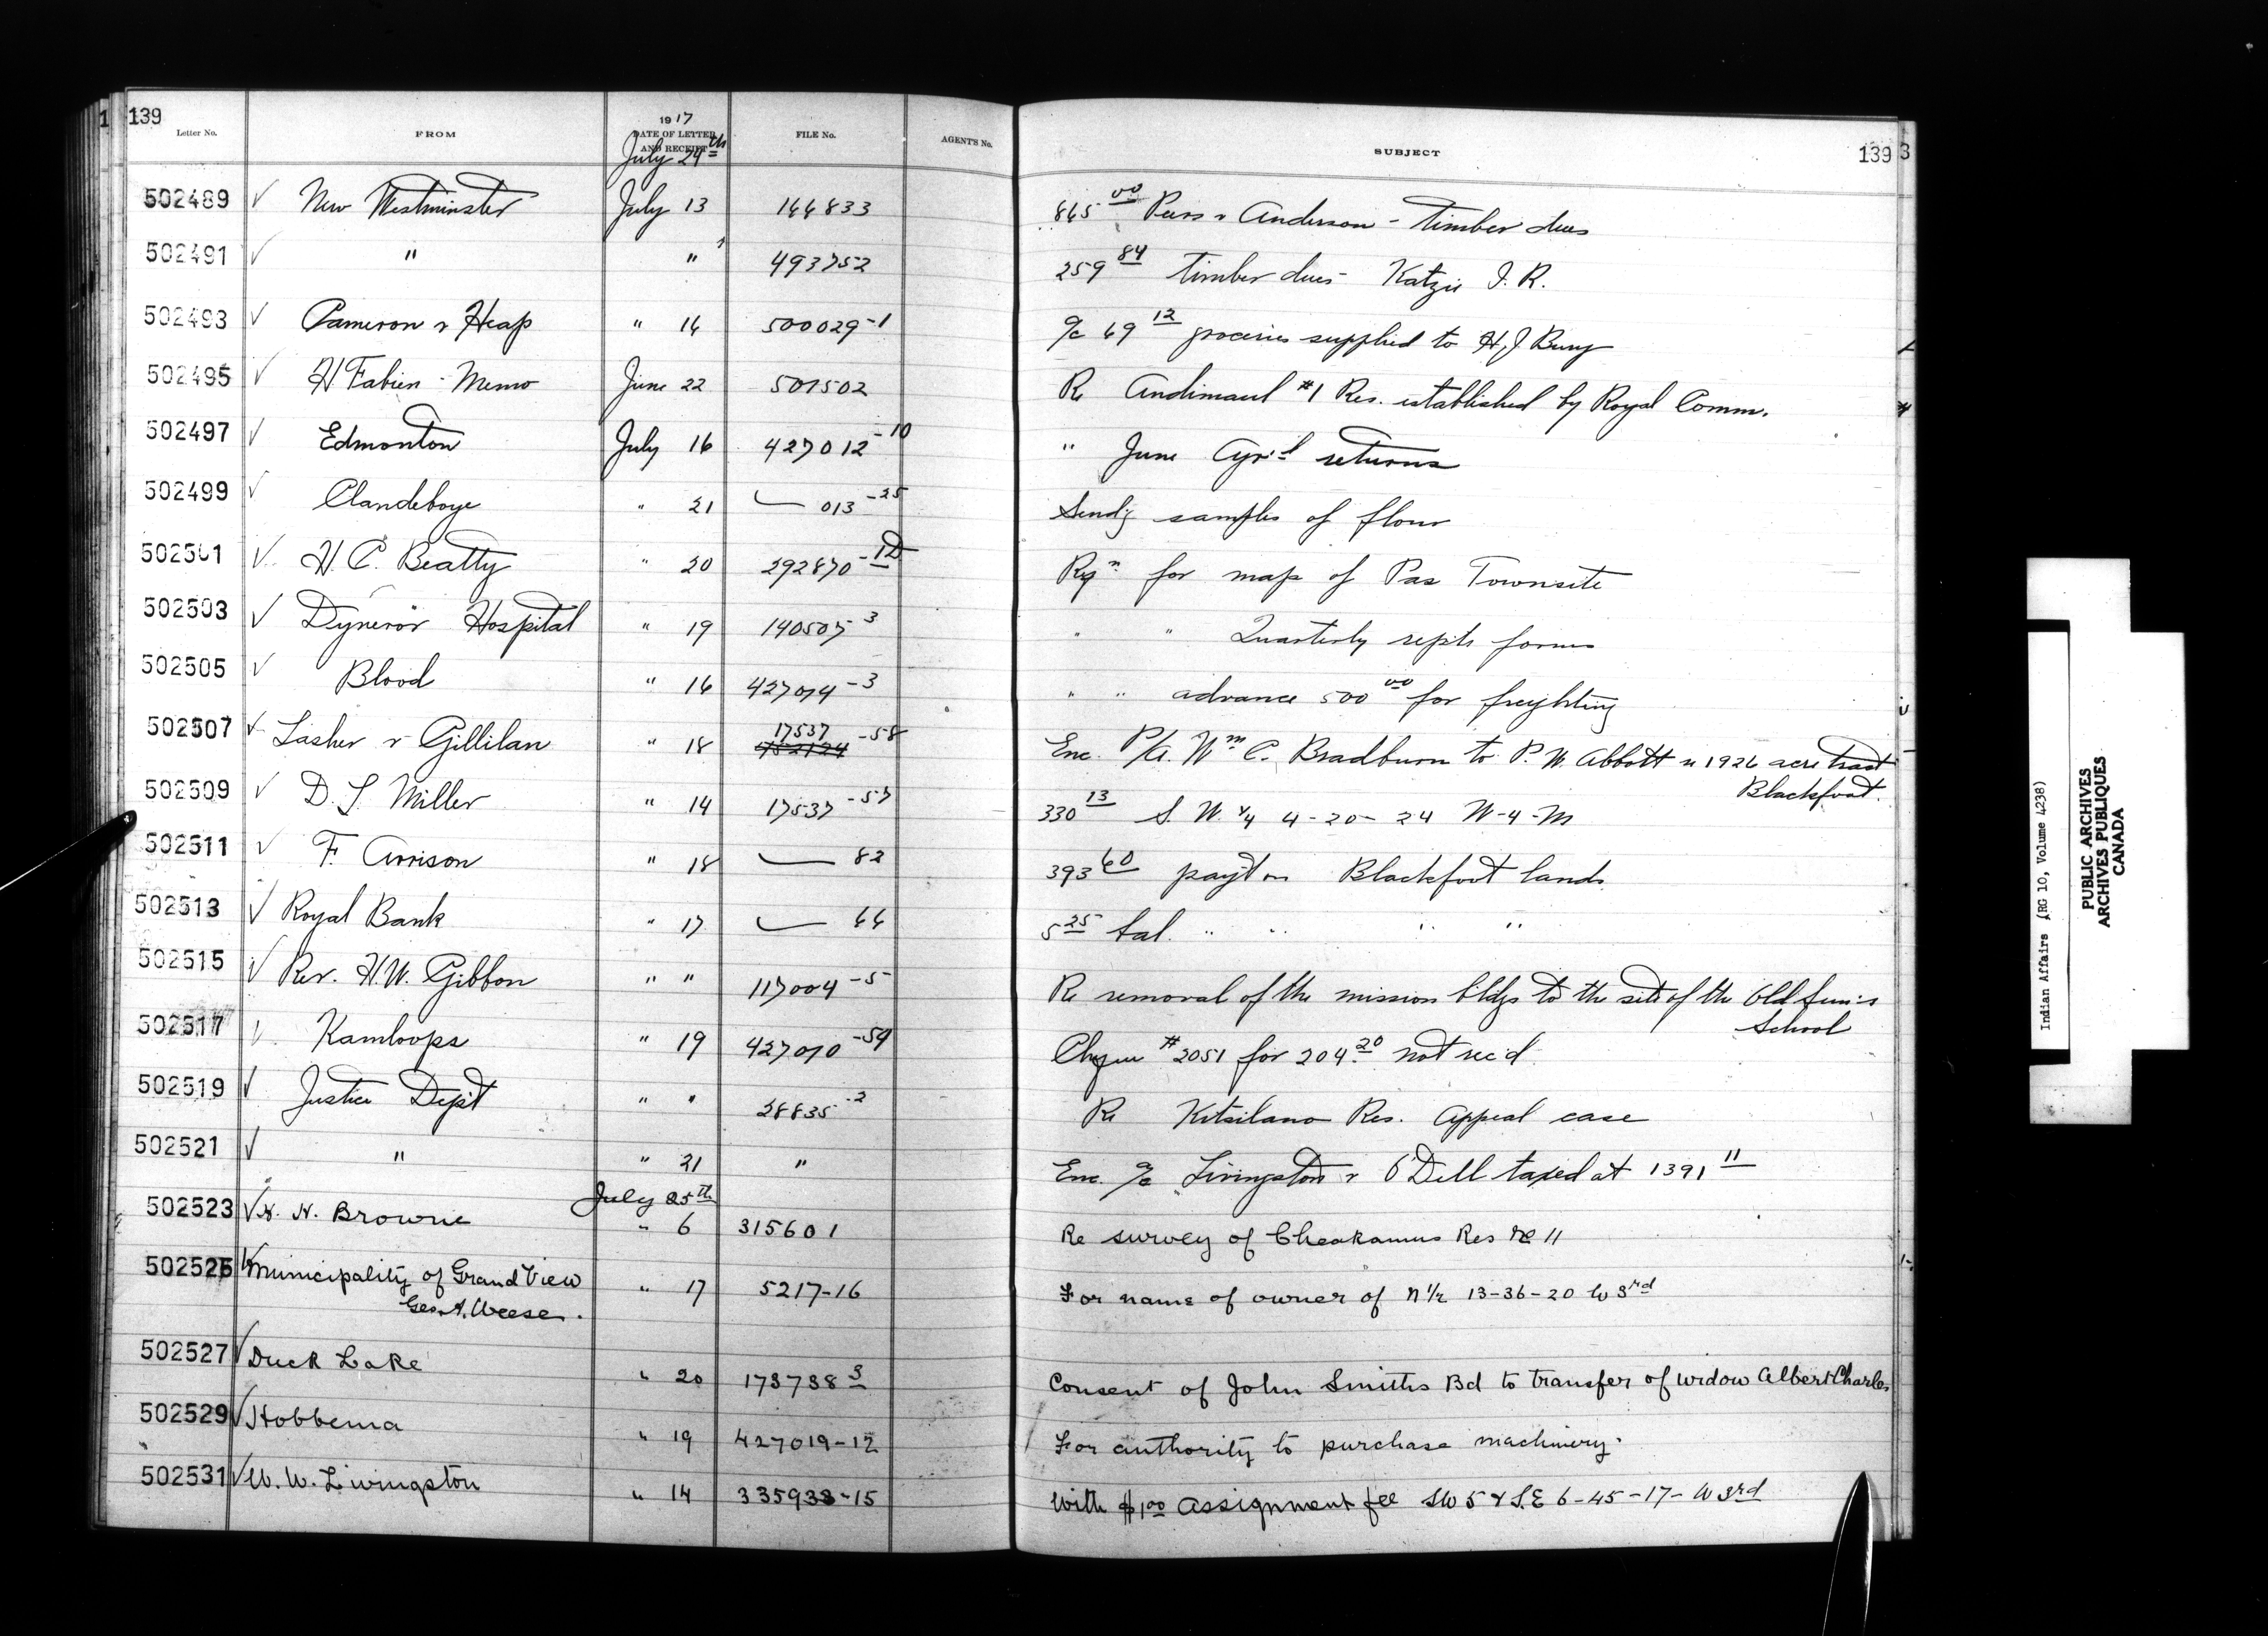 1 139 139 3
Letter No. FROM 1917 DATE OF LETTER AND RECEIPT FILE No. AGENT'S No. SUBJECT
July 24th
502489 ✓ New Westminster July 13 144833 865 00 & Anderson - timber dues
502491 ✓ " " 493752 259 84 timber dues Katzie I. R.
502493 ✓ Cameron & Heap " 16 500029-1 a/c 69 12 groceries supplied to H. J. Bury
502495 ✓ H Fabien - Memo June 22 501502 Re Andimaul #1 Res. established by Royal Comm.
502497 ✓ Edmonton July 16 427012-10 " June Agr'l returns
502499 ✓ Clandeboye " 21 — 013-25 Send'g samples of flour
502501 ✓ H. C. Beatty " 20 292870-1D Reqn for map of Pas Townsite
502503 ✓ Dynevor Hospital " 19 140507 3 " " Quarterly repts forms
502505 ✓ Blood " 16 427014-3 " " advance 500 00 for freighting
502507 ✓ Lasher & Gillilan " 18 17537-58 Enc. P/A. Wm C. Bradburn to P. W. Abbott re 1926 acre tract
482124 Blackfoot.
502509 ✓ D. L. Miller " 14 17537-57 330 13 S. W. ¼ 4-20-24 W-4-M
502511 ✓ F. Arrison " 18 — 82 393 60 pay't on Blackfoot lands
502513 ✓ Royal Bank " 17 — 66 5 25 bal. " " " "
502515 ✓ Rev. H. W. Gibbon " " 117004-5 Re removal of the mission bldgs to the site of the Old Sun's
School
502517 ✓ Kamloops " 19 427010-59 Cheque #2051 for 204.20 not rec'd
502519 ✓ Justice Dep't " " 28835-2 Re Kitsilano Res. Appeal case
502521 ✓ " " 21 " Enc. a/c Livingston & O'Dell taxed at 1391 11
July 25th
502523 ✓ H. N. Browne " 6 315601 Re survey of Cheakamus Res No 11
502525 ✓ Municipality of Grand View " 17 5217-16 For name of owner of N 1/2 13-36-20 W 3rd
Geo. A. Weese.
502527 ✓ Duck Lake " 20 173738 3 Consent of John Smiths Bd to transfer of widow Albert Charles
502529 ✓ Hobbema " 19 427019-12 For authority to purchase machinery.
502531 ✓ W. W. Livingston " 14 335933-15 With $1 00 assignment fee SW 5 & S.E 6-45-17-W 3rd
Indian Affairs (RG 10, Volume 4238)
PUBLIC ARCHIVES
ARCHIVES PUBLIQUES
CANADA